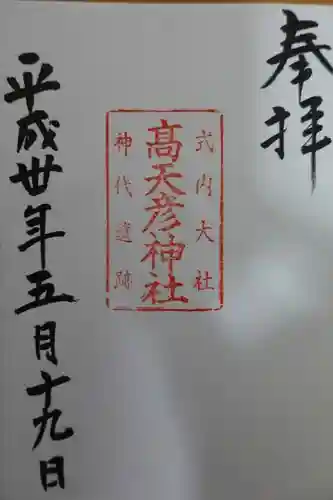 奉拝
式内大社
高天彦神社
神代遺跡
平成卅年五月十九日